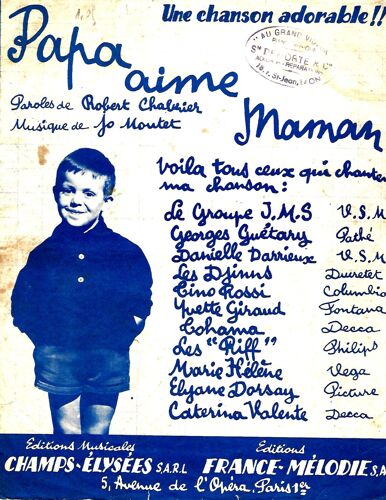 Une chanson adorable!!
Papa
aime
Maman
Paroles de Robert Chabrier
Musique de Jo Moutet
"AU GRAND VIOLON"
18, r. St-Jean, LYON
Voila tous ceux qui chantent
ma chanson:
Le Groupe J.M.S V.S.M
Georges Guétary Pathé
Danielle Darrieux V.S.M
Les Djinns Ducretet
Tino Rossi Columbia
Yvette Giraud Fontana
Cohama Decca
Les "Riff" Philips
Marie Hélène Vega
Elyane Dorsay Picture
Caterina Valente Decca
Editions Musicales Editions
CHAMPS-ÉLYSÉES S.A.R.L FRANCE-MÉLODIE S.A
5, Avenue de l'Opéra, Paris 1er